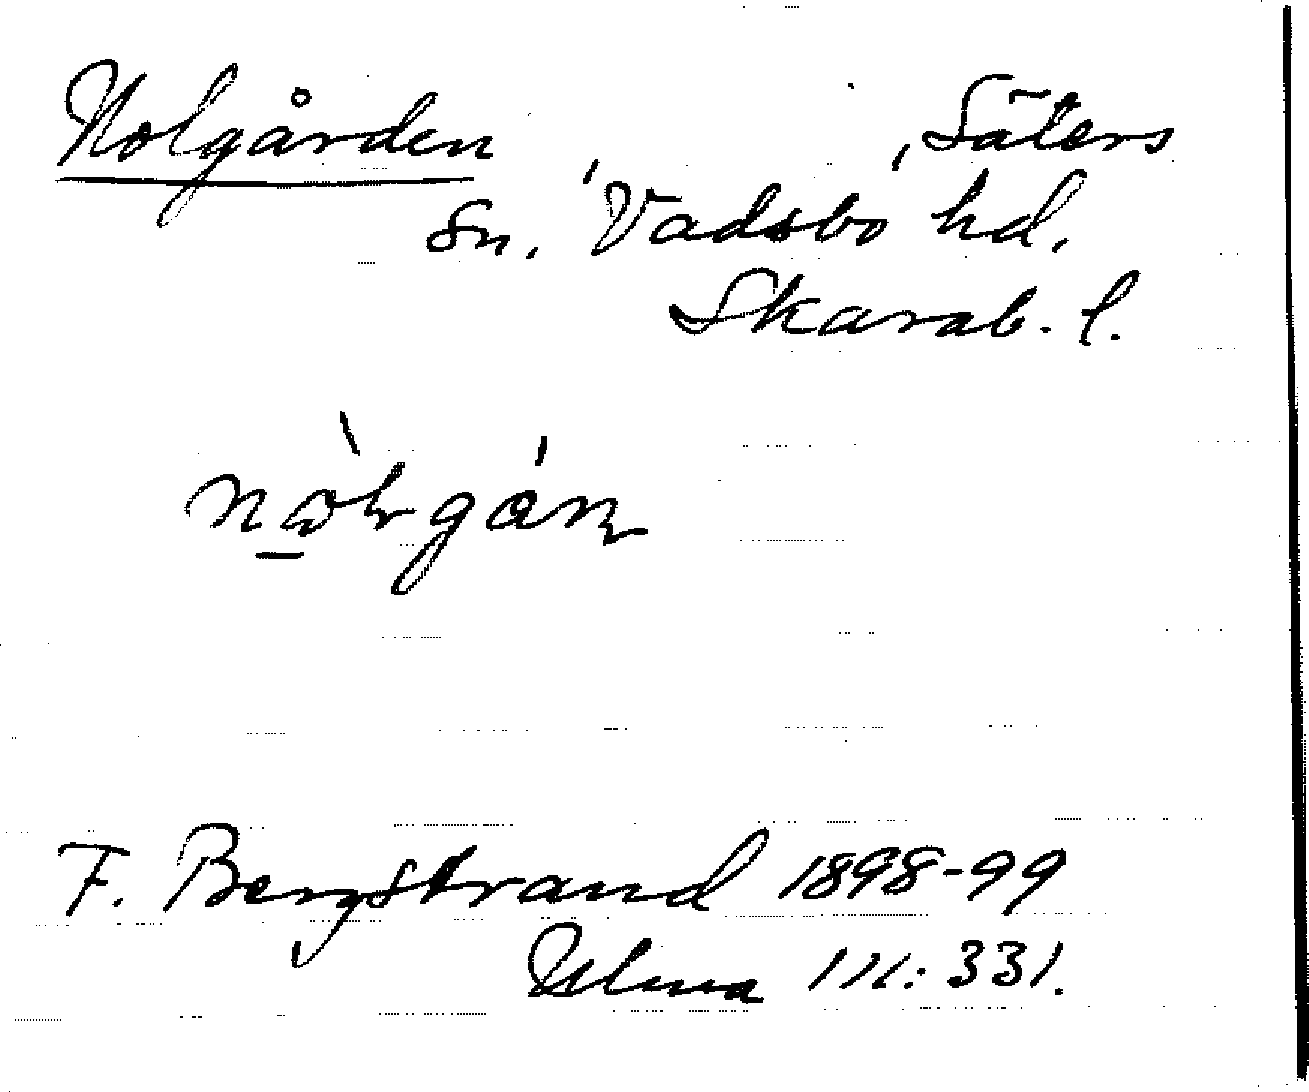 Nolgården , Säters
sn. Vadsbo hd.
Skarab. l.
F. Bergstrand 1898-99
111: 331.